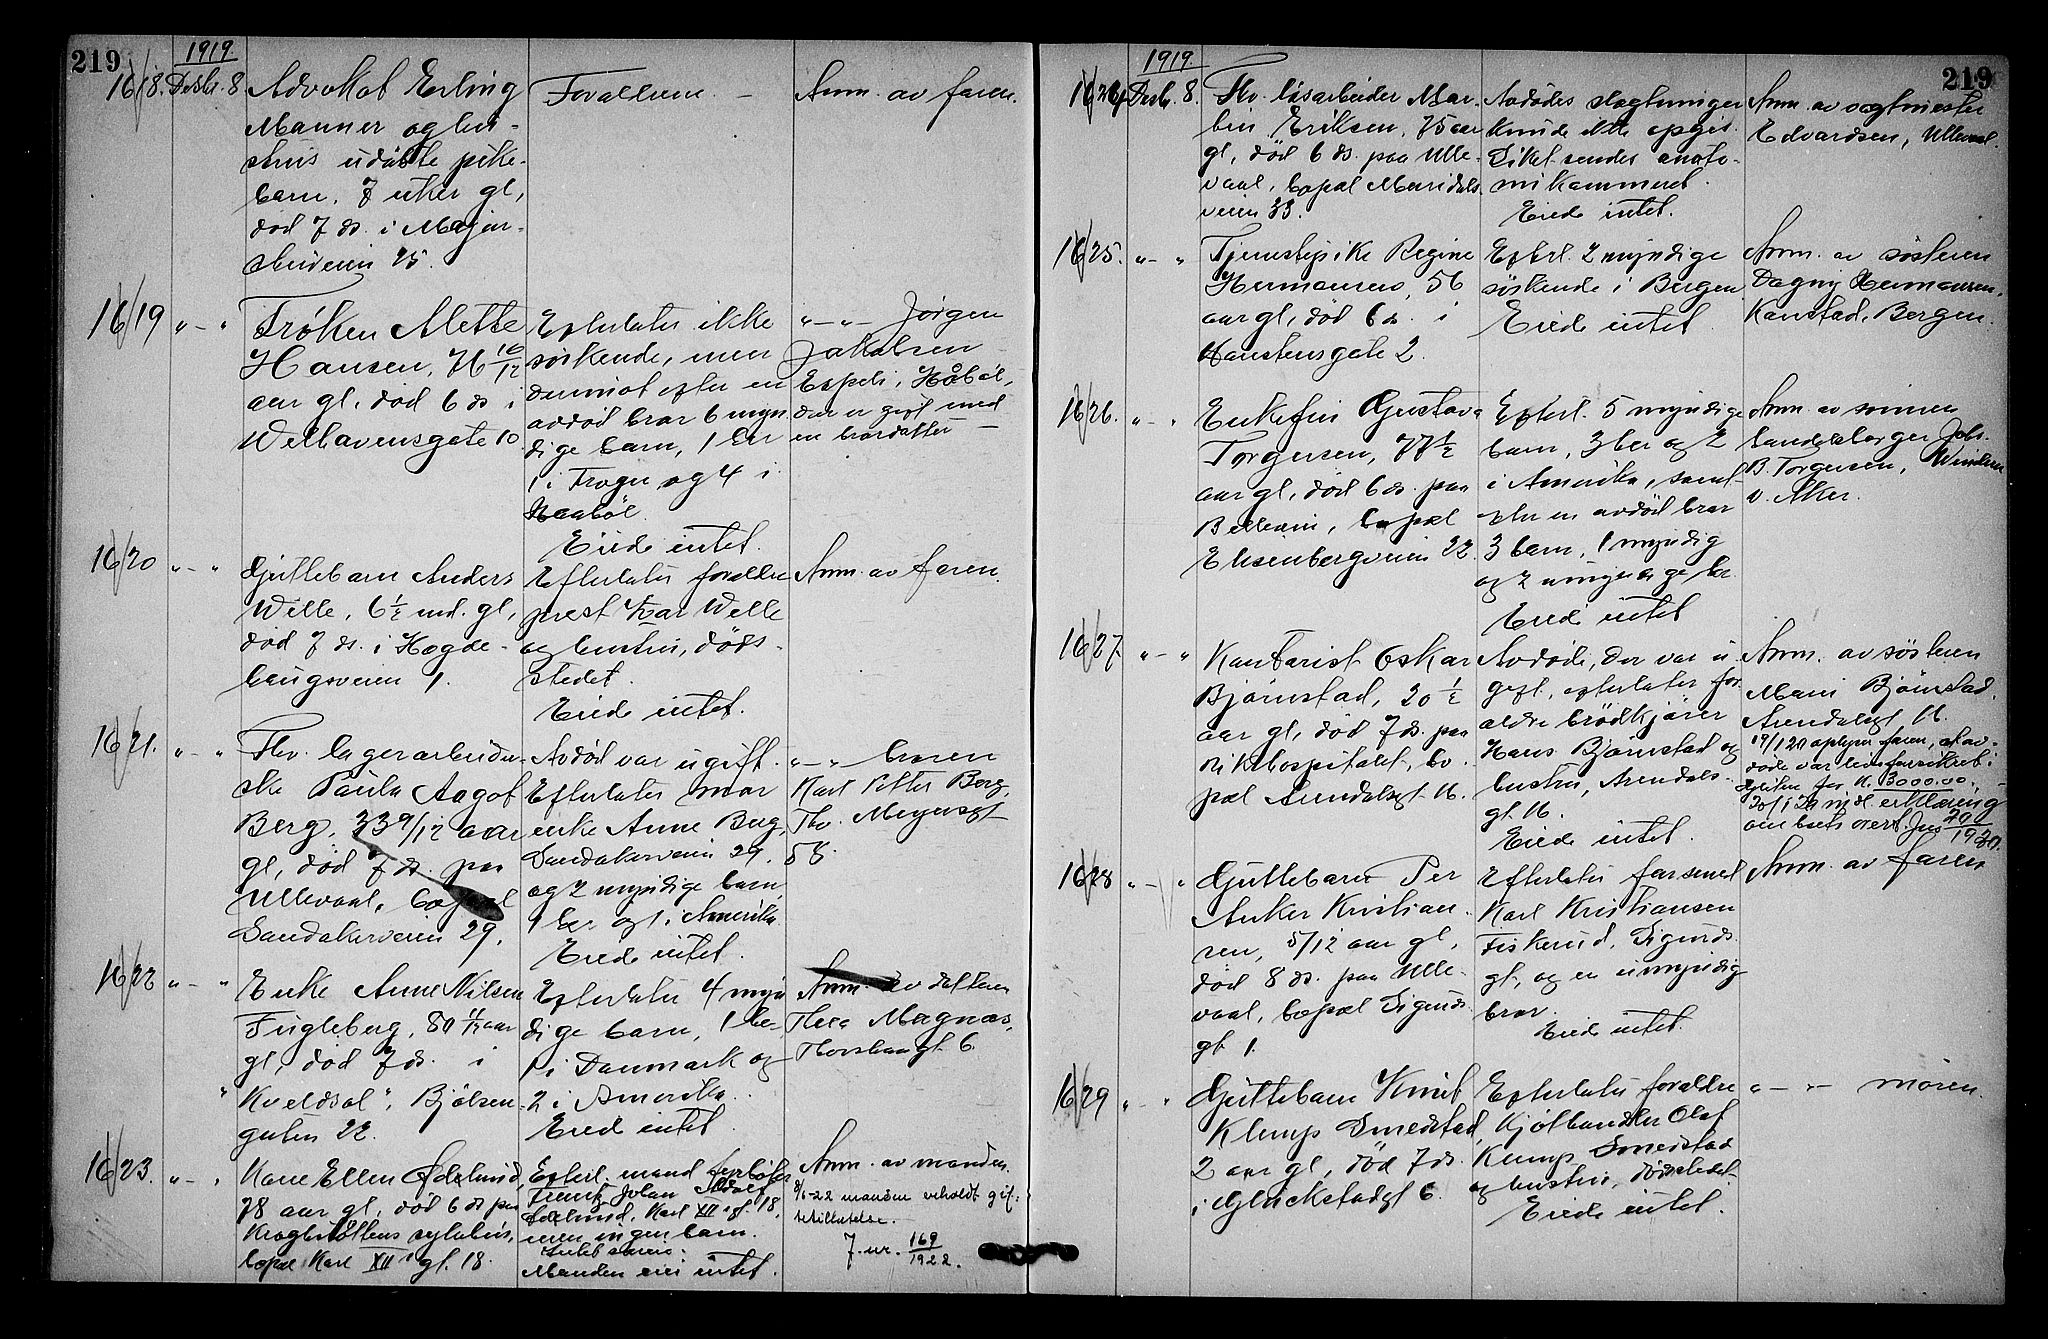 219
1919.
1618. Desbr. 8
Advokat Erling
Manner og hu-
strus udöbte pike-
barn, 7 uker gl,
död 7 ds. i Major-
stuveien 25.
Forældrene. –
Anm. av faren.
1619 " – "
Frøken Mette
Hansen, 76 10/12
aar gl, död 6 ds i
Welhavensgate 10
Efterlater ikke
söskende, men
derimot efter en
avdöd bror 6 myn
dige barn, 1 her
1 i Frogn og 4 i
Haaböl.
Eiede intet.
" – " – Jörgen
Jakobsen
Espeli, Håböl,
der er gift med
en brordatter –
1620 " – "
Guttebarn Anders
Welle, 6 1/2 md. gl,
död 7 ds. i Hegde-
haugsveien 1.
Efterlater forældre
prest Ivar Welle
og hustru, döds-
stedet.
Eiede intet.
Anm. av faren.
1621. " – "
Fhv. lagerarbeider-
ske Paula Aagot
Berg, 33 9/12 aar
gl, död 7 ds. paa
Ullevaal, bopæl
Sandakerveien 29.
Avdöd var ugift.
Efterlater mor
enke Anne Berg,
Sandakerveien 29,
og 2 myndige barn,
1 her og 1 i Amerika
Eiede intet.
" – " broren
Karl Petter Berg,
Thv. Meyersgt
58.
1622 " – "
Enke Anne Nilsen
Fugleberg, 80 11/12 aar
gl, död 7 ds. i
"Kveldsol", Bjölsen-
gaten 22.
Efterlater 4 myn
dige barn, 1 her
1 i Danmark og
2 i Amerika.
Eied intet.
Anm. av datteren
Thea Magnæs,
Thorshaugt 6.
1623. " – "
Kone Ellen Ödelund,
78 aar gl, död 6 ds paa
Krogstöttens sykehus,
bopæl Karl XII's gt. 18.
Efterl. mand fyrböter
Frantz Johan
Ödelund, Karl XII's gt. 18,
men ingen barn.
Manden eier intet.
Anm. av manden.
8/6-22 manden
7. ur. 169/1922.
219
1919.
1624 Desb. 8.
Fhv. lösarbeider Mar-
ben Eriksen, 75 aar
gl, död 6 ds. paa Ulle-
vaal, bopæl Maridals
veien 33.
Avdödes slegtninger
kunde ikke opgis.
Liket sendes anato-
mikammeret.
Eiede intet.
Anm. av vagtmester
Edvardsen, Ullevaal.
1625. " – "
Tjenestepike Regine
Hermansen, 56
aar gl, död 6 ds. i
Hanstensgate 2.
Efterl. 2 myndige
söskende i Bergen
Eiede intet.
Anm. av søsteren
Dagny Hermansen,
Kanstad, Bergen.
1626. " – "
Enkefru Gustava
Torgersen, 77 1/2
aar gl, död 6 ds. paa
Betheani, bopæl
Elisenbergveien 22.
Efterl. 5 myndige
barn, 3 her og 2
i Amerika, samt
efter en avdöd bror
3 barn, 1 myndig
og 2 umyndige her.
Eied intet
Anm. av sönnen
handelsborger Joh.
B. Torgersen, Vinderen
v. Aker.
1627. " – "
Kontorist Oskar
Björnstad, 20 1/2
aar gl, död 7 ds. paa
rikshospitalet, bo-
pæl Arendalsgt 16.
Avdöde, der var u
gift, efterlater for-
ældre brödkjörer
Hans Björnstad og
hustru, Arendals-
gt. 16.
Eiede intet.
Anm. av søsteren
Marie Björnstad,
Arendalsgt. 16.
19/1 20 oplyser faren, at av-
döde var livsforsikret i
for K. 3000.00.
20/1 20 mdl. erklæring
om boets overt. Jur. 20/1920.
1628 " – "
Guttebarn Per
Anker Kristian-
sen, 5/12 aar gl,
död 8 ds. paa Ulle-
vaal, bopæl Sigurds
gt. 1.
Efterlater far smed
Karl Kristiansen
Fiskerud, Sigurds
gt, og en umyndig
bror.
Eied intet.
Anm. av faren
1629 " – "
Guttebarn Knut
Klemp Smedstad,
2 aar gl, död 7 ds.
i Glückstadgt 6.
Efterlater forældre
Kjöthandler Olaf
Klemp Smedstad
og hustru, dödsstedet.
Eiede intet.
" – " – moren.